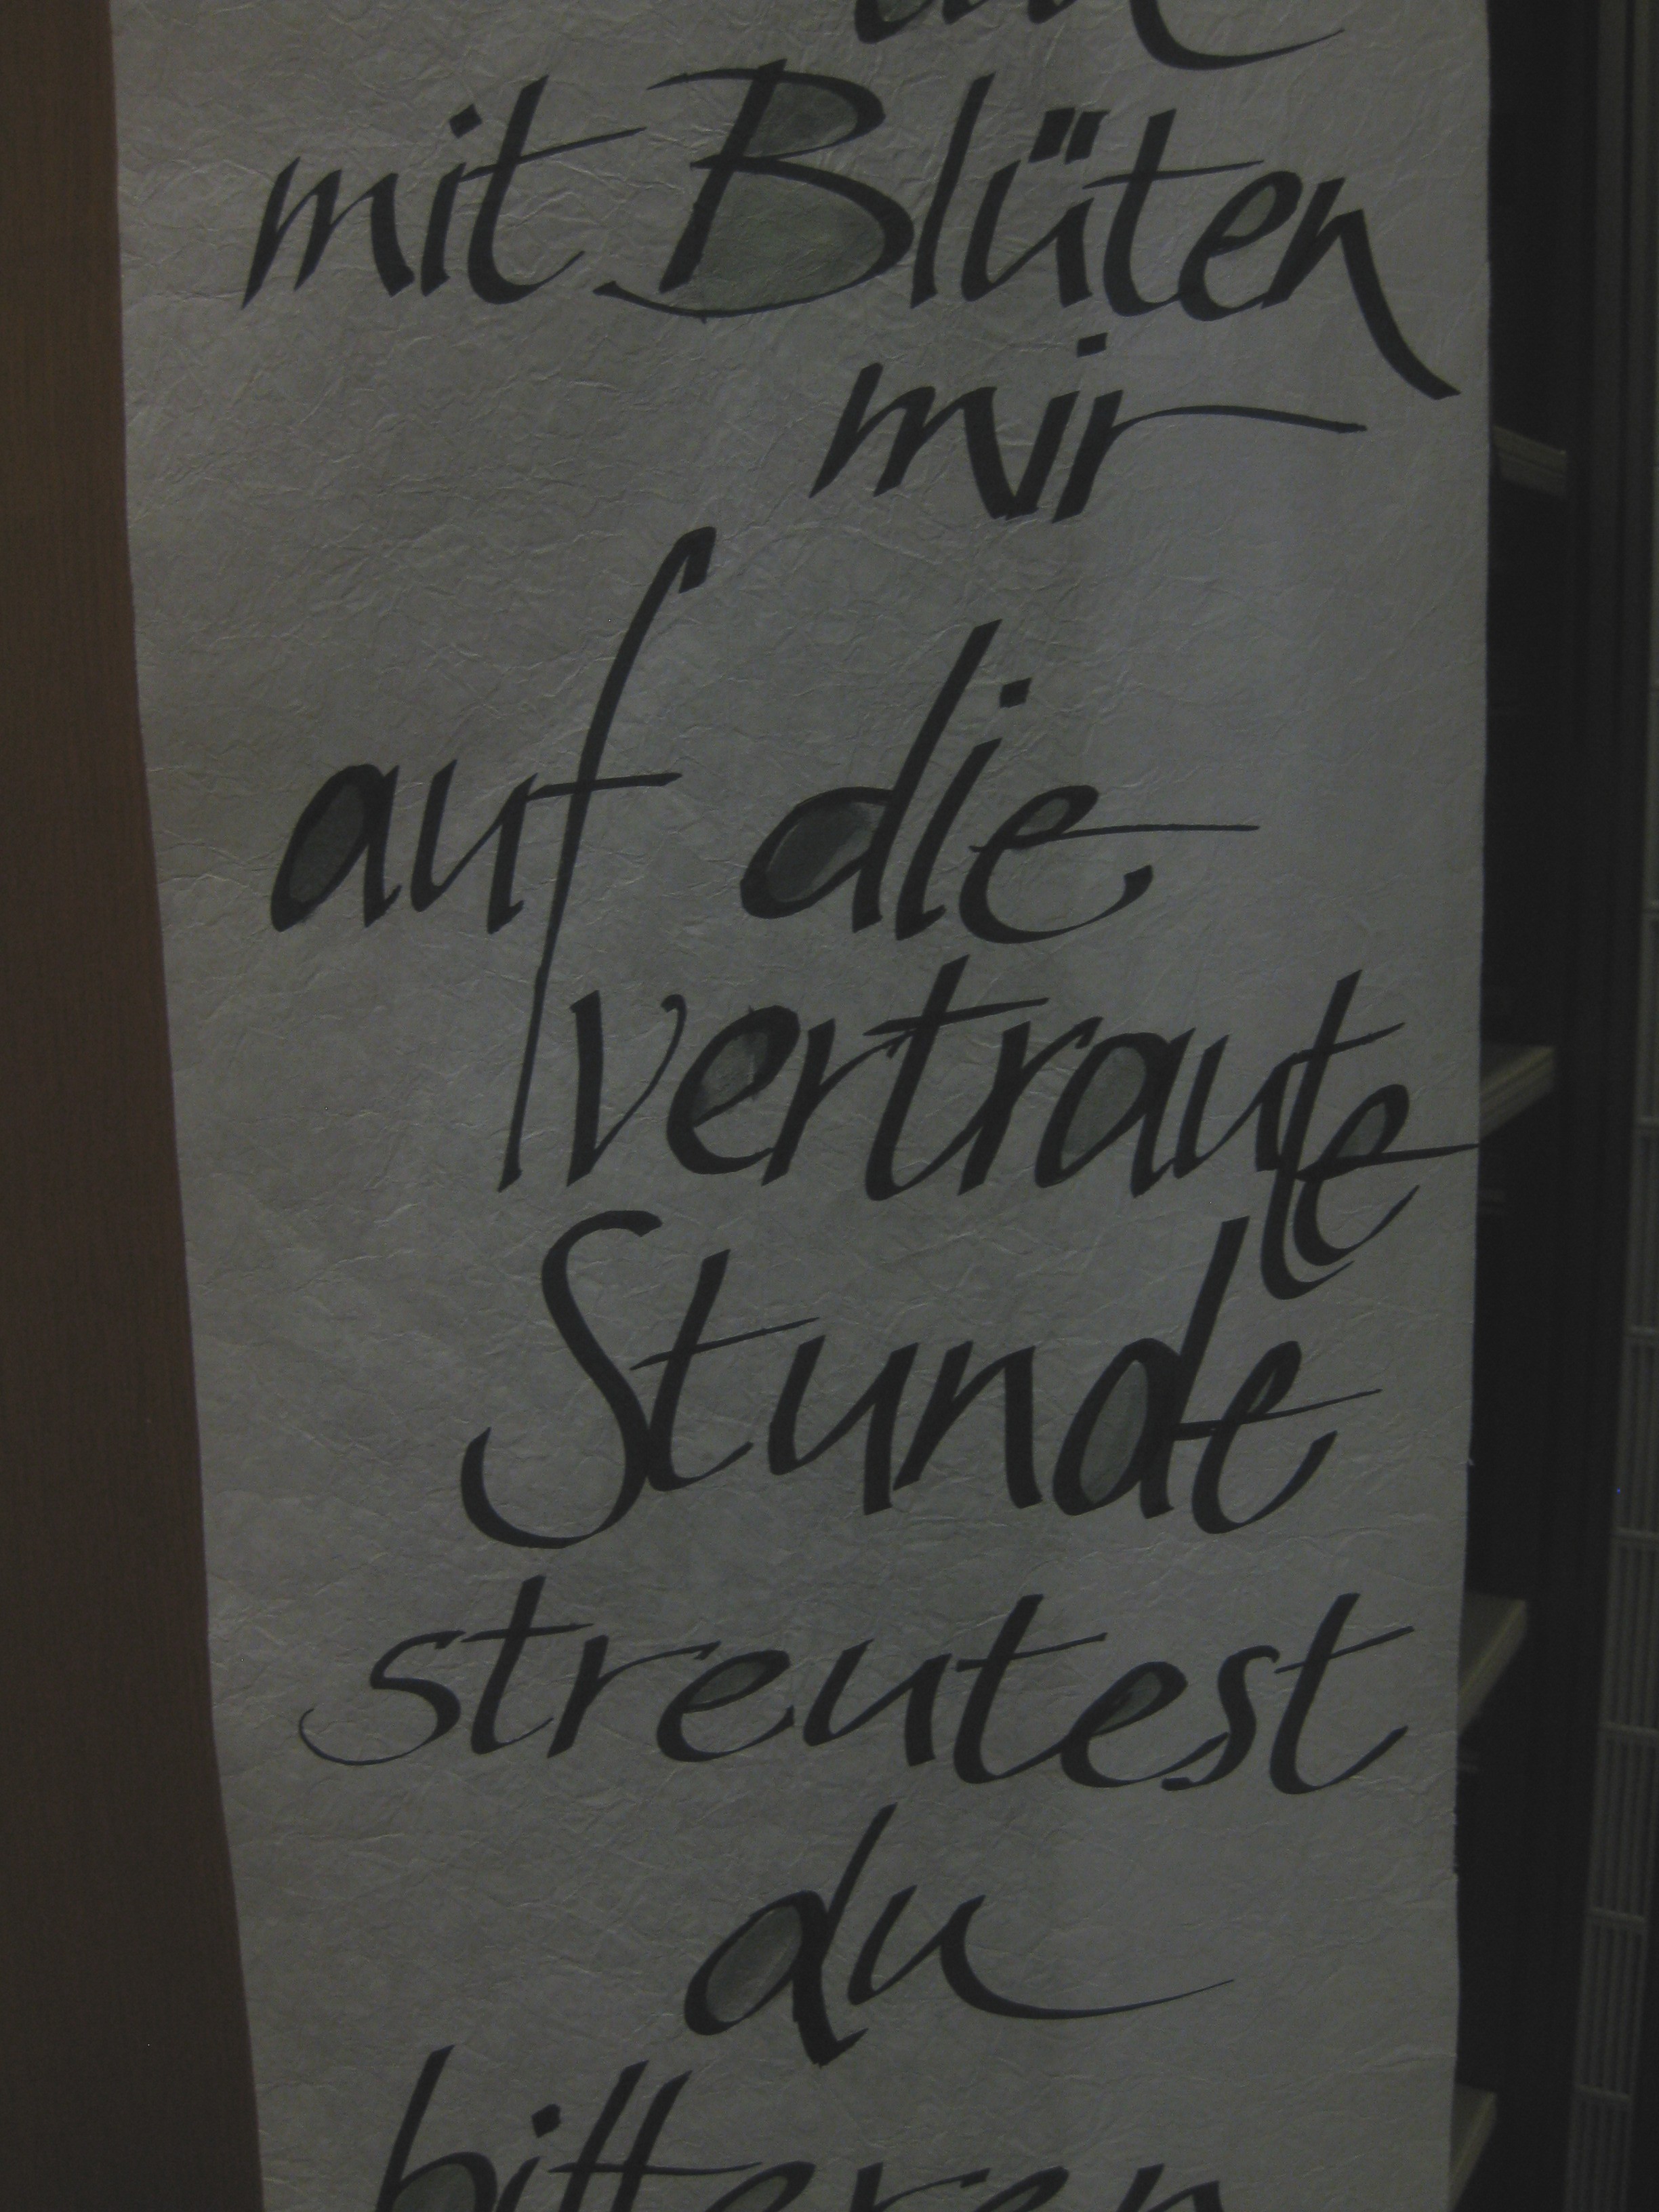 mit Blüten
mir
auf die
vertraute
Stunde
streutest
du
bitteren